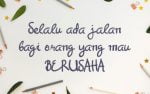 Selalu ada jalan
bagi orang yang mau
BERUSAHA